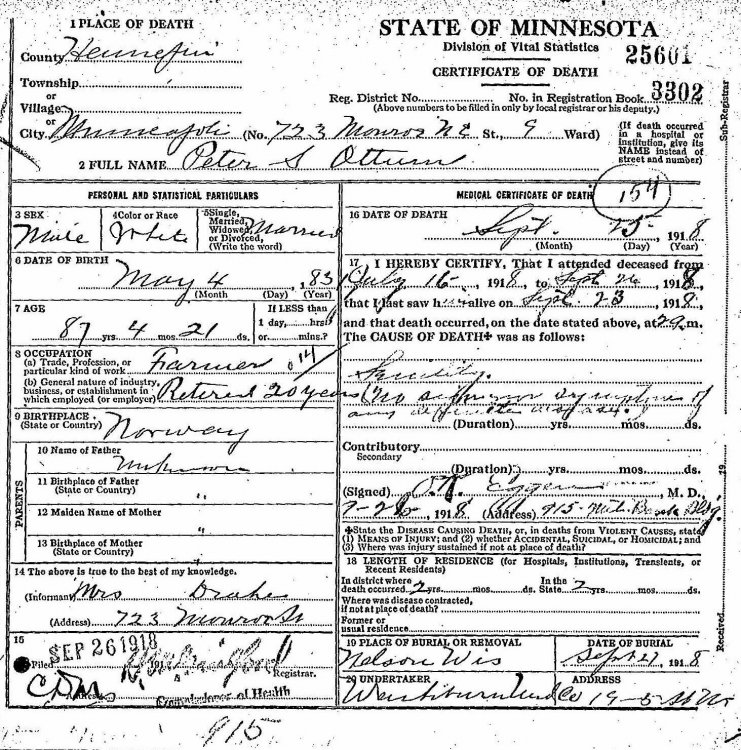 1 PLACE OF DEATH
County Hennepin
Township
or
Village
or
City Minneapolis (No. 723 Monroe N.E. St., 9 Ward)
2 FULL NAME Peter S Ottum
STATE OF MINNESOTA
Division of Vital Statistics
25601
CERTIFICATE OF DEATH
Reg. District No. No. in Registration Book 3302
(Above numbers to be filled in only by local registrar or his deputy.)
(If death occurred
in a hospital or
institution, give its
NAME instead of
street and number)
PERSONAL AND STATISTICAL PARTICULARS
3 SEX
Male
4 Color or Race
White
5 Single,
Married,
Widowed,
or Divorced,
(Write the word)
Married
6 DATE OF BIRTH
May 4, 183
(Month) (Day) (Year)
7 AGE
87 yrs. 4 mos. 21 ds.
If LESS than
1 day, hrs.
or mins.?
8 OCCUPATION
(a) Trade, Profession, or
particular kind of work Farmer
(b) General nature of industry,
business, or establishment in
which employed (or employer) Retired 20 years
9 BIRTHPLACE
(State or Country) Norway
PARENTS
10 Name of Father
Unknown
11 Birthplace of Father
(State or Country) "
12 Maiden Name of Mother
"
13 Birthplace of Mother
(State or Country) "
14 The above is true to the best of my knowledge.
(Informant) Mrs Drake
(Address) 723 Monroe St
15
Filed SEP 26 1918 191
Registrar.
Commissioner of Health
MEDICAL CERTIFICATE OF DEATH
154
16 DATE OF DEATH
Sept. 25, 1918
(Month) (Day) (Year)
17 I HEREBY CERTIFY, That I attended deceased from
July 16, 1918, to Sept 26 1918,
that I last saw him alive on Sept. 23, 1918,
and that death occurred, on the date stated above, at m.
The CAUSE OF DEATH✠ was as follows:
Senility.
(No symptoms of
any definite disease.)
(Duration) yrs. mos. ds.
Contributory
Secondary
(Duration) yrs. mos. ds.
(Signed) Eggen M. D.
9-26, 1918 (Address) 915 Met. Bank Bldg.
✠State the DISEASE CAUSING DEATH, or, in deaths from VIOLENT CAUSES, state
(1) MEANS OF INJURY; and (2) whether ACCIDENTAL, SUICIDAL, OR HOMICIDAL; and
(3) Where was injury sustained if not at place of death?
18 LENGTH OF RESIDENCE (for Hospitals, Institutions, Transients, or
Recent Residents)
In district where
death occurred 2 yrs. mos. ds.
In the
State 2 yrs. mos. ds.
Where was disease contracted,
if not at place of death?
Former or
usual residence
19 PLACE OF BURIAL OR REMOVAL
Nelson Wis
DATE OF BURIAL
Sept 27, 1918
20 UNDERTAKER
ADDRESS
Sub-Registrar
19
Received
915